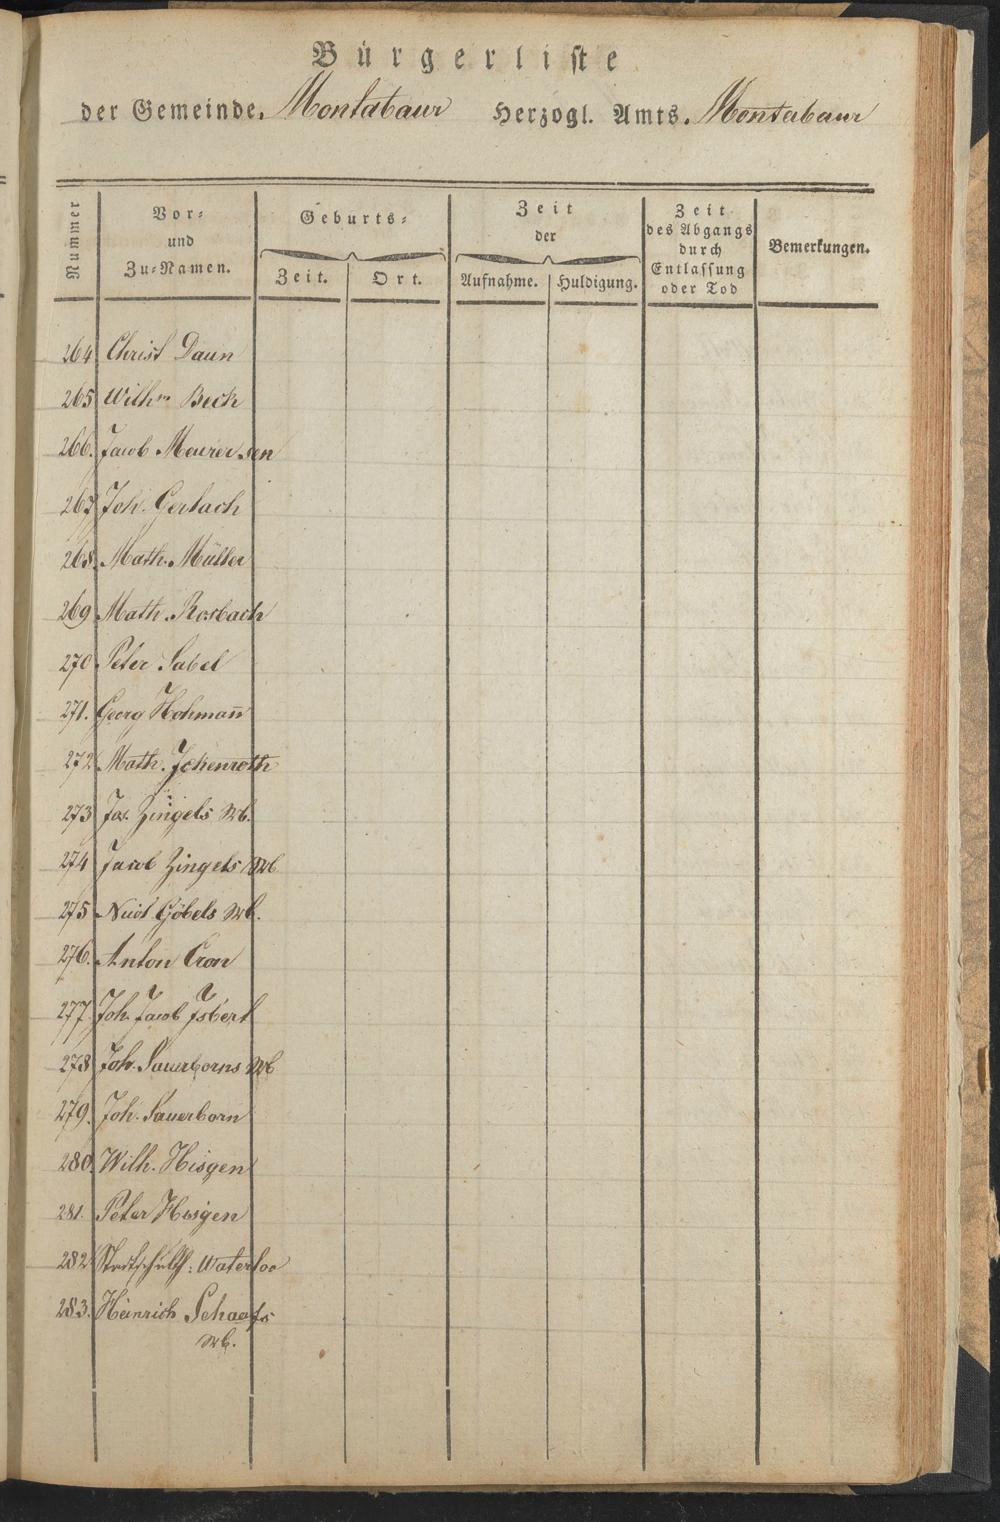 Bürgerliste
der Gemeinde Montabaur Herzogl. Amts Montabaur
Nummer
Vor=
und
Zu=Namen.
Geburts=
Zeit. Ort.
Zeit
der
Aufnahme. Huldigung.
Zeit
des Abgangs
durch
Entlassung
oder Tod
Bemerkungen.
264 Christ Daun
265 Wilhm Beck
266. Jacob Meurer sen
267 Joh. Gerlach
268. Math. Müller
269 Math. Rosbach
270 Peter Sabel
271. Georg Hohman̅
272 Math. Ickenroth
273 Jos. Zingels Wb.
274 Jacob Zingels Wb
275 Göbels Wb.
276. Anton Cron
277 Joh. Jacob Isbert
278 Joh. Sauerborns Wb
279. Joh. Sauerborn
280. Wilh. Hisgen
281. Peter Hisgen
282 Stadtschulth: Waterloo
283. Heinrich Schaafs
Wb.